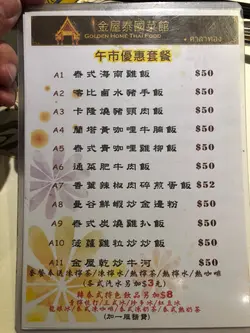 金屋泰國菜館
GOLDEN HOME THAI FOOD
午市優惠套餐
A1 泰式海南雞飯 $50
A2 客比鹵水豬手飯 $50
A3 卡隆燒豬頸肉飯 $50
A4 蘭塔黃咖哩牛腩飯 $50
A5 泰式青咖哩雞柳飯 $50
A6 通菜肥牛肉飯 $50
A7 香葉辣椒肉碎煎蛋飯 $52
A8 曼谷鮮蝦炒金邊粉 $50
A9 泰式炭燒雞扒飯 $50
A10 菠蘿雞粒炒炒飯 $50
A11 金屋乾炒牛河 $50
泰餐奉送凍檸茶/凍檸水/熱檸茶/熱檸水/熱咖啡
(各式汽水另加$3元)
轉泰式特色飲品另加$8
(加一服務費)